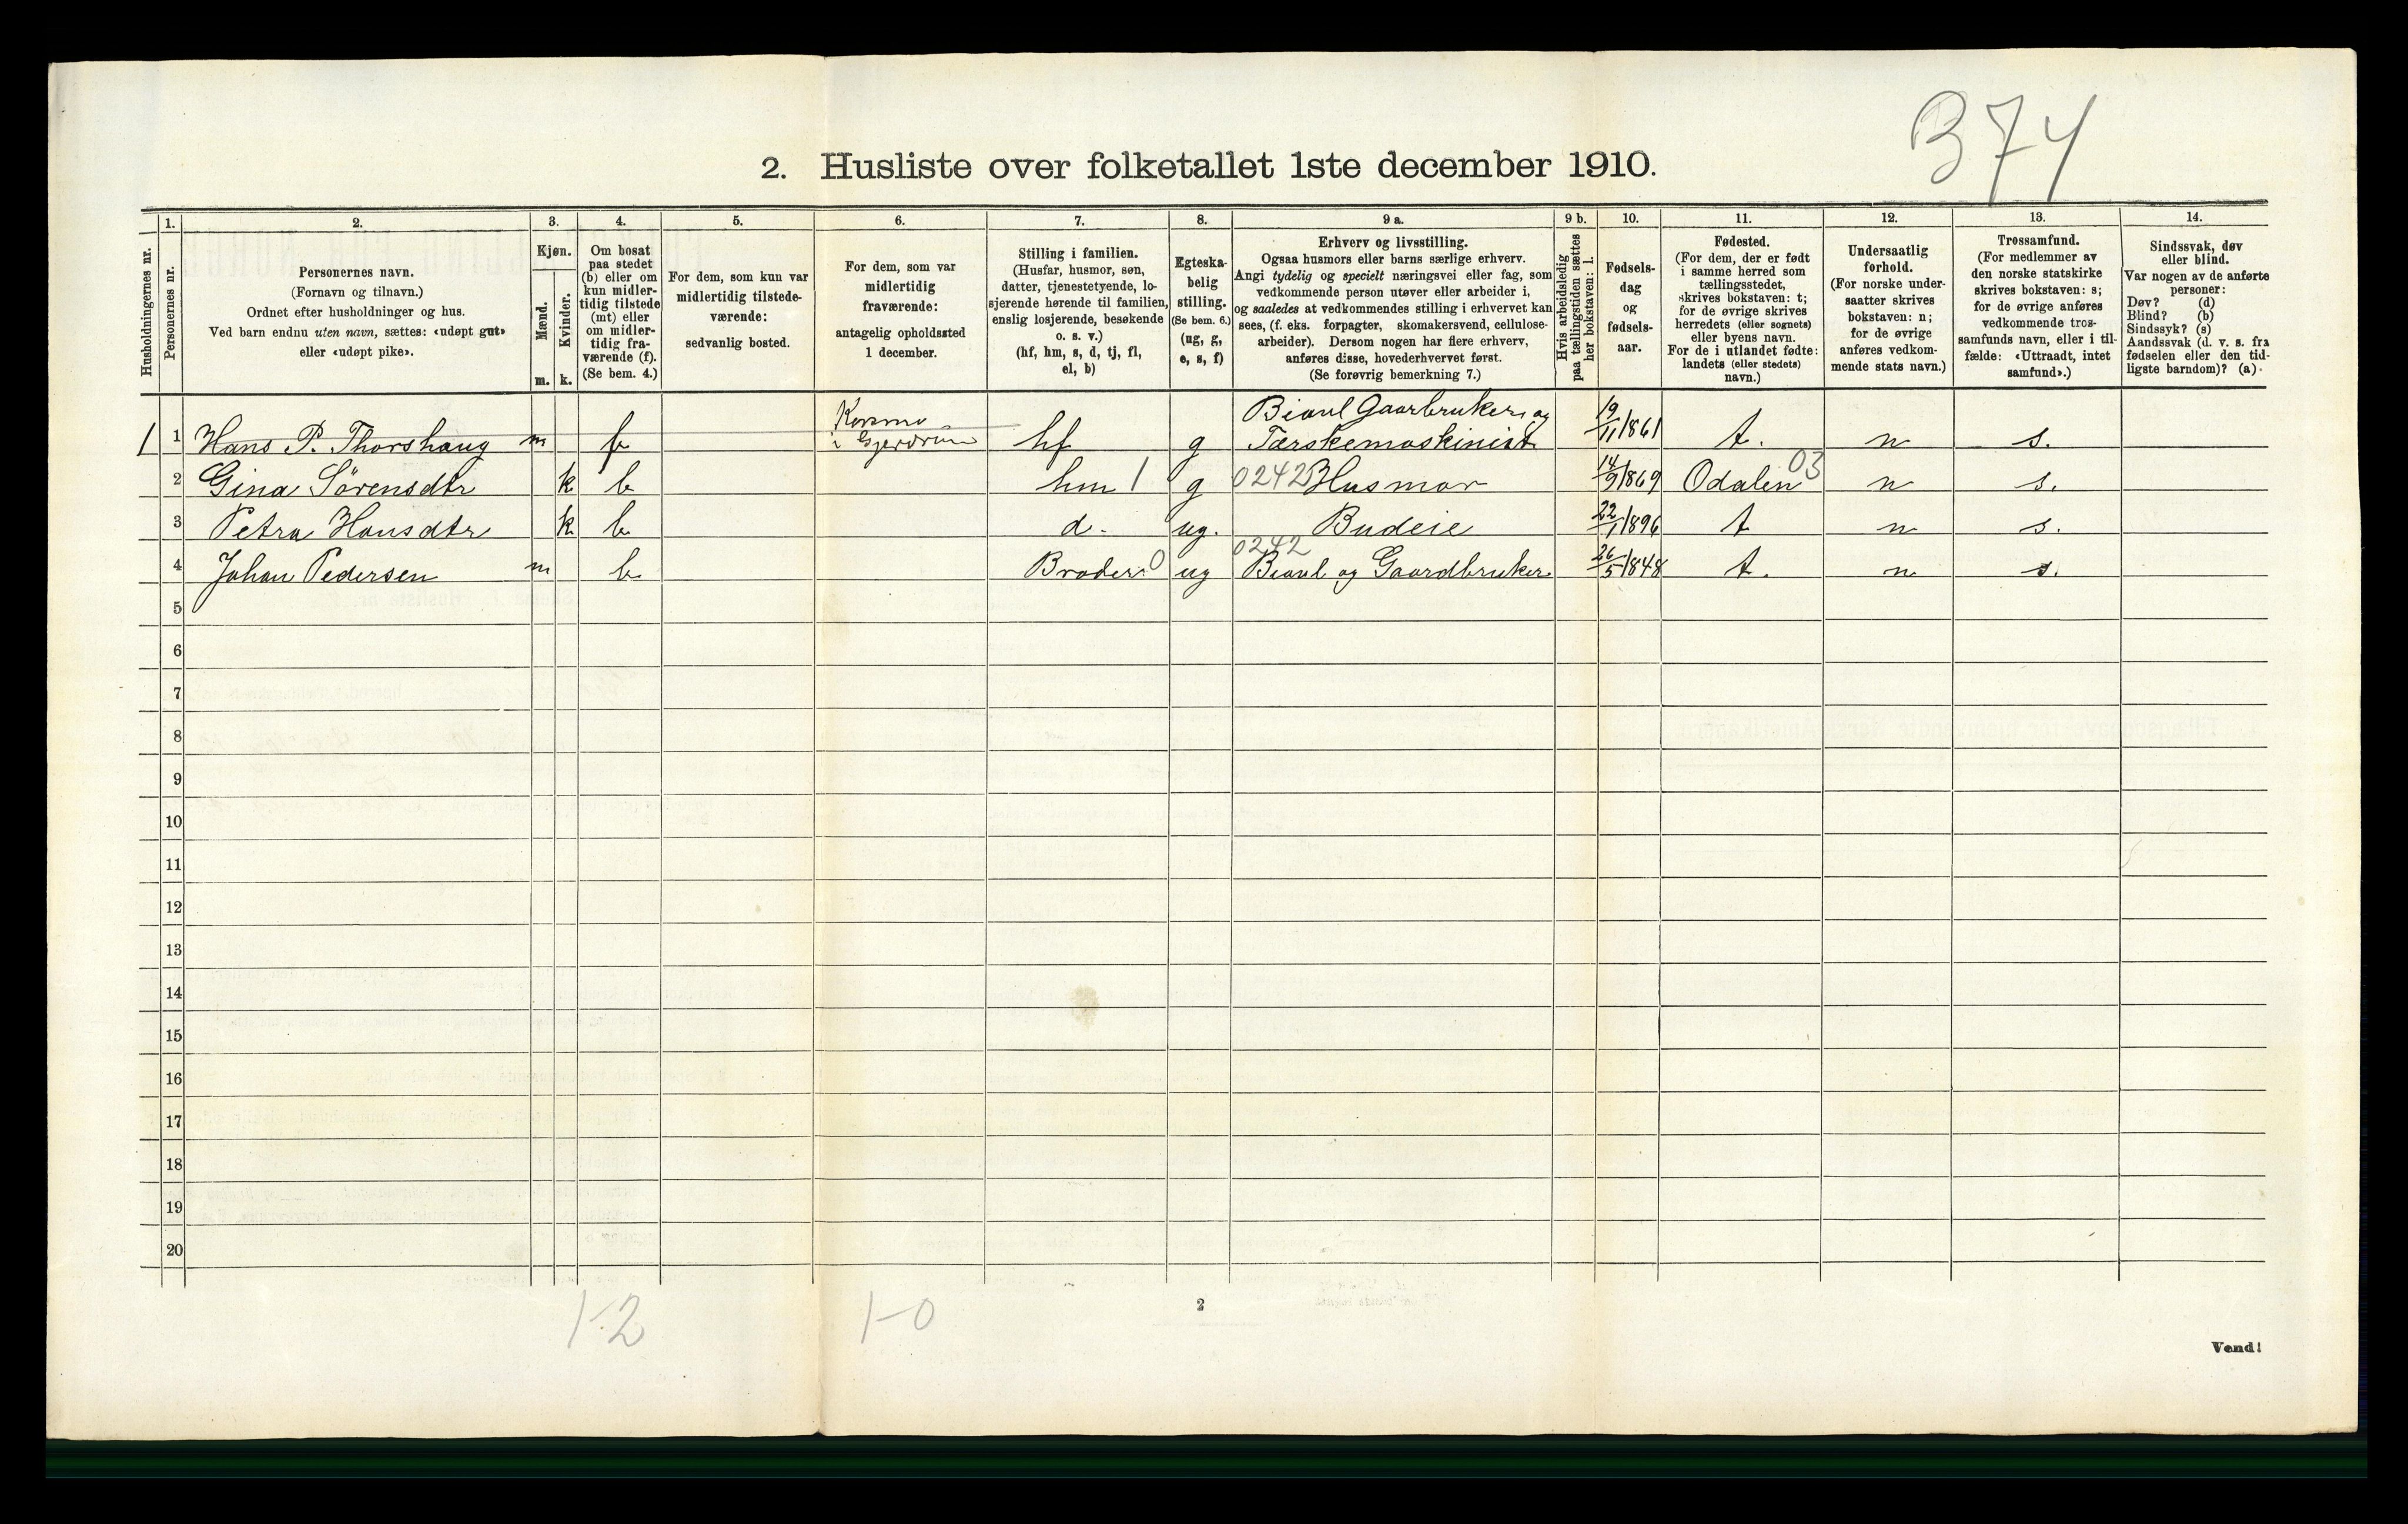 B74
2. Husliste over folketallet 1ste december 1910.
Husholdningernes nr.
1.
Personernes nr.
2.
Personernes navn.
(Fornavn og tilnavn.)
Ordnet efter husholdninger og hus.
Ved barn endnu uten navn, sættes: «udøpt gut»
eller «udøpt pike».
3.
Kjøn.
Mænd.
Kvinder.
m. k.
4.
Om bosat
paa stedet
(b) eller om
kun midler-
tidig tilstede
(mt) eller
om midler-
tidig fra-
værende (f).
(Se bem. 4.)
5.
For dem, som kun var
midlertidig tilstede-
værende:
sedvanlig bosted.
6.
For dem, som var
midlertidig
fraværende:
antagelig opholdssted
1 december.
7.
Stilling i familien.
(Husfar, husmor, søn,
datter, tjenestetyende, lo-
sjerende hørende til familien,
enslig losjerende, besøkende
o. s. v.)
(hf, hm, s, d, tj, fl,
el, b)
8.
Egteska-
belig
stilling.
(Se bem. 6.)
(ug, g,
e, s, f)
9 a.
Erhverv og livsstilling.
Ogsaa husmors eller barns særlige erhverv.
Angi tydelig og specielt næringsvei eller fag, som
vedkommende person utøver eller arbeider i,
og saaledes at vedkommendes stilling i erhvervet kan
sees, (f. eks. forpagter, skomakersvend, cellulose-
arbeider). Dersom nogen har flere erhverv,
anføres disse, hovederhvervet først.
(Se forøvrig bemerkning 7.)
9 b.
Hvis arbeidsledig
paa tællingstiden sættes
her bokstaven: l.
10.
Fødsels-
dag
og
fødsels-
aar.
11.
Fødested.
(For dem, der er født
i samme herred som
tællingsstedet,
skrives bokstaven: t;
for de øvrige skrives
herredets (eller sognets)
eller byens navn.
For de i utlandet fødte:
landets (eller stedets)
navn.)
12.
Undersaatlig
forhold.
(For norske under-
saatter skrives
bokstaven: n;
for de øvrige
anføres vedkom-
mende stats navn.)
13.
Trossamfund.
(For medlemmer av
den norske statskirke
skrives bokstaven: s;
for de øvrige anføres
vedkommende tros-
samfunds navn, eller i til-
fælde: «Uttraadt, intet
samfund».)
14.
Sindssvak, døv
eller blind.
Var nogen av de anførte
personer:
Døv? (d)
Blind? (b)
Sindssyk? (s)
Aandssvak (d. v. s. fra
fødselen eller den tid-
ligste barndom)? (a).
Korsmo Biavl Gaarbruker og
1 1 Hans P. Thorshaug m f i Gjerdrum hf g Tærskemaskinist 19/11 1861 t. n s.
2 Gina Sörensdtr k b hm 1 g 0242 Husmor 14/9 1869 Odalen 03 n s.
3 Petra Hansdtr k b d. ug. Budeie 22/1 1896 t n s.
0242
4 Johan Pedersen m b Broder 0 ug Biavl og Gaardbruker 26/5 1848 t. n s.
5
6
7
8
9
10
11
12
13
14
15
16
17
18
19
20
1-2 1-0
2
Vend!